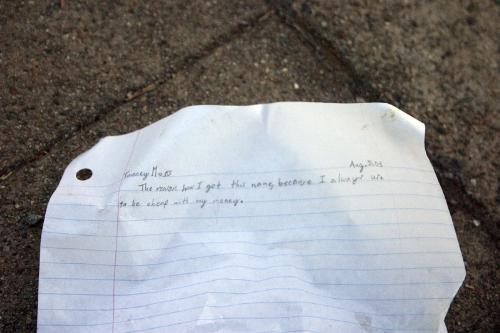 Money Mass Aug. 2003
The reason how I got this name, because I always use
to be cheap with my money.